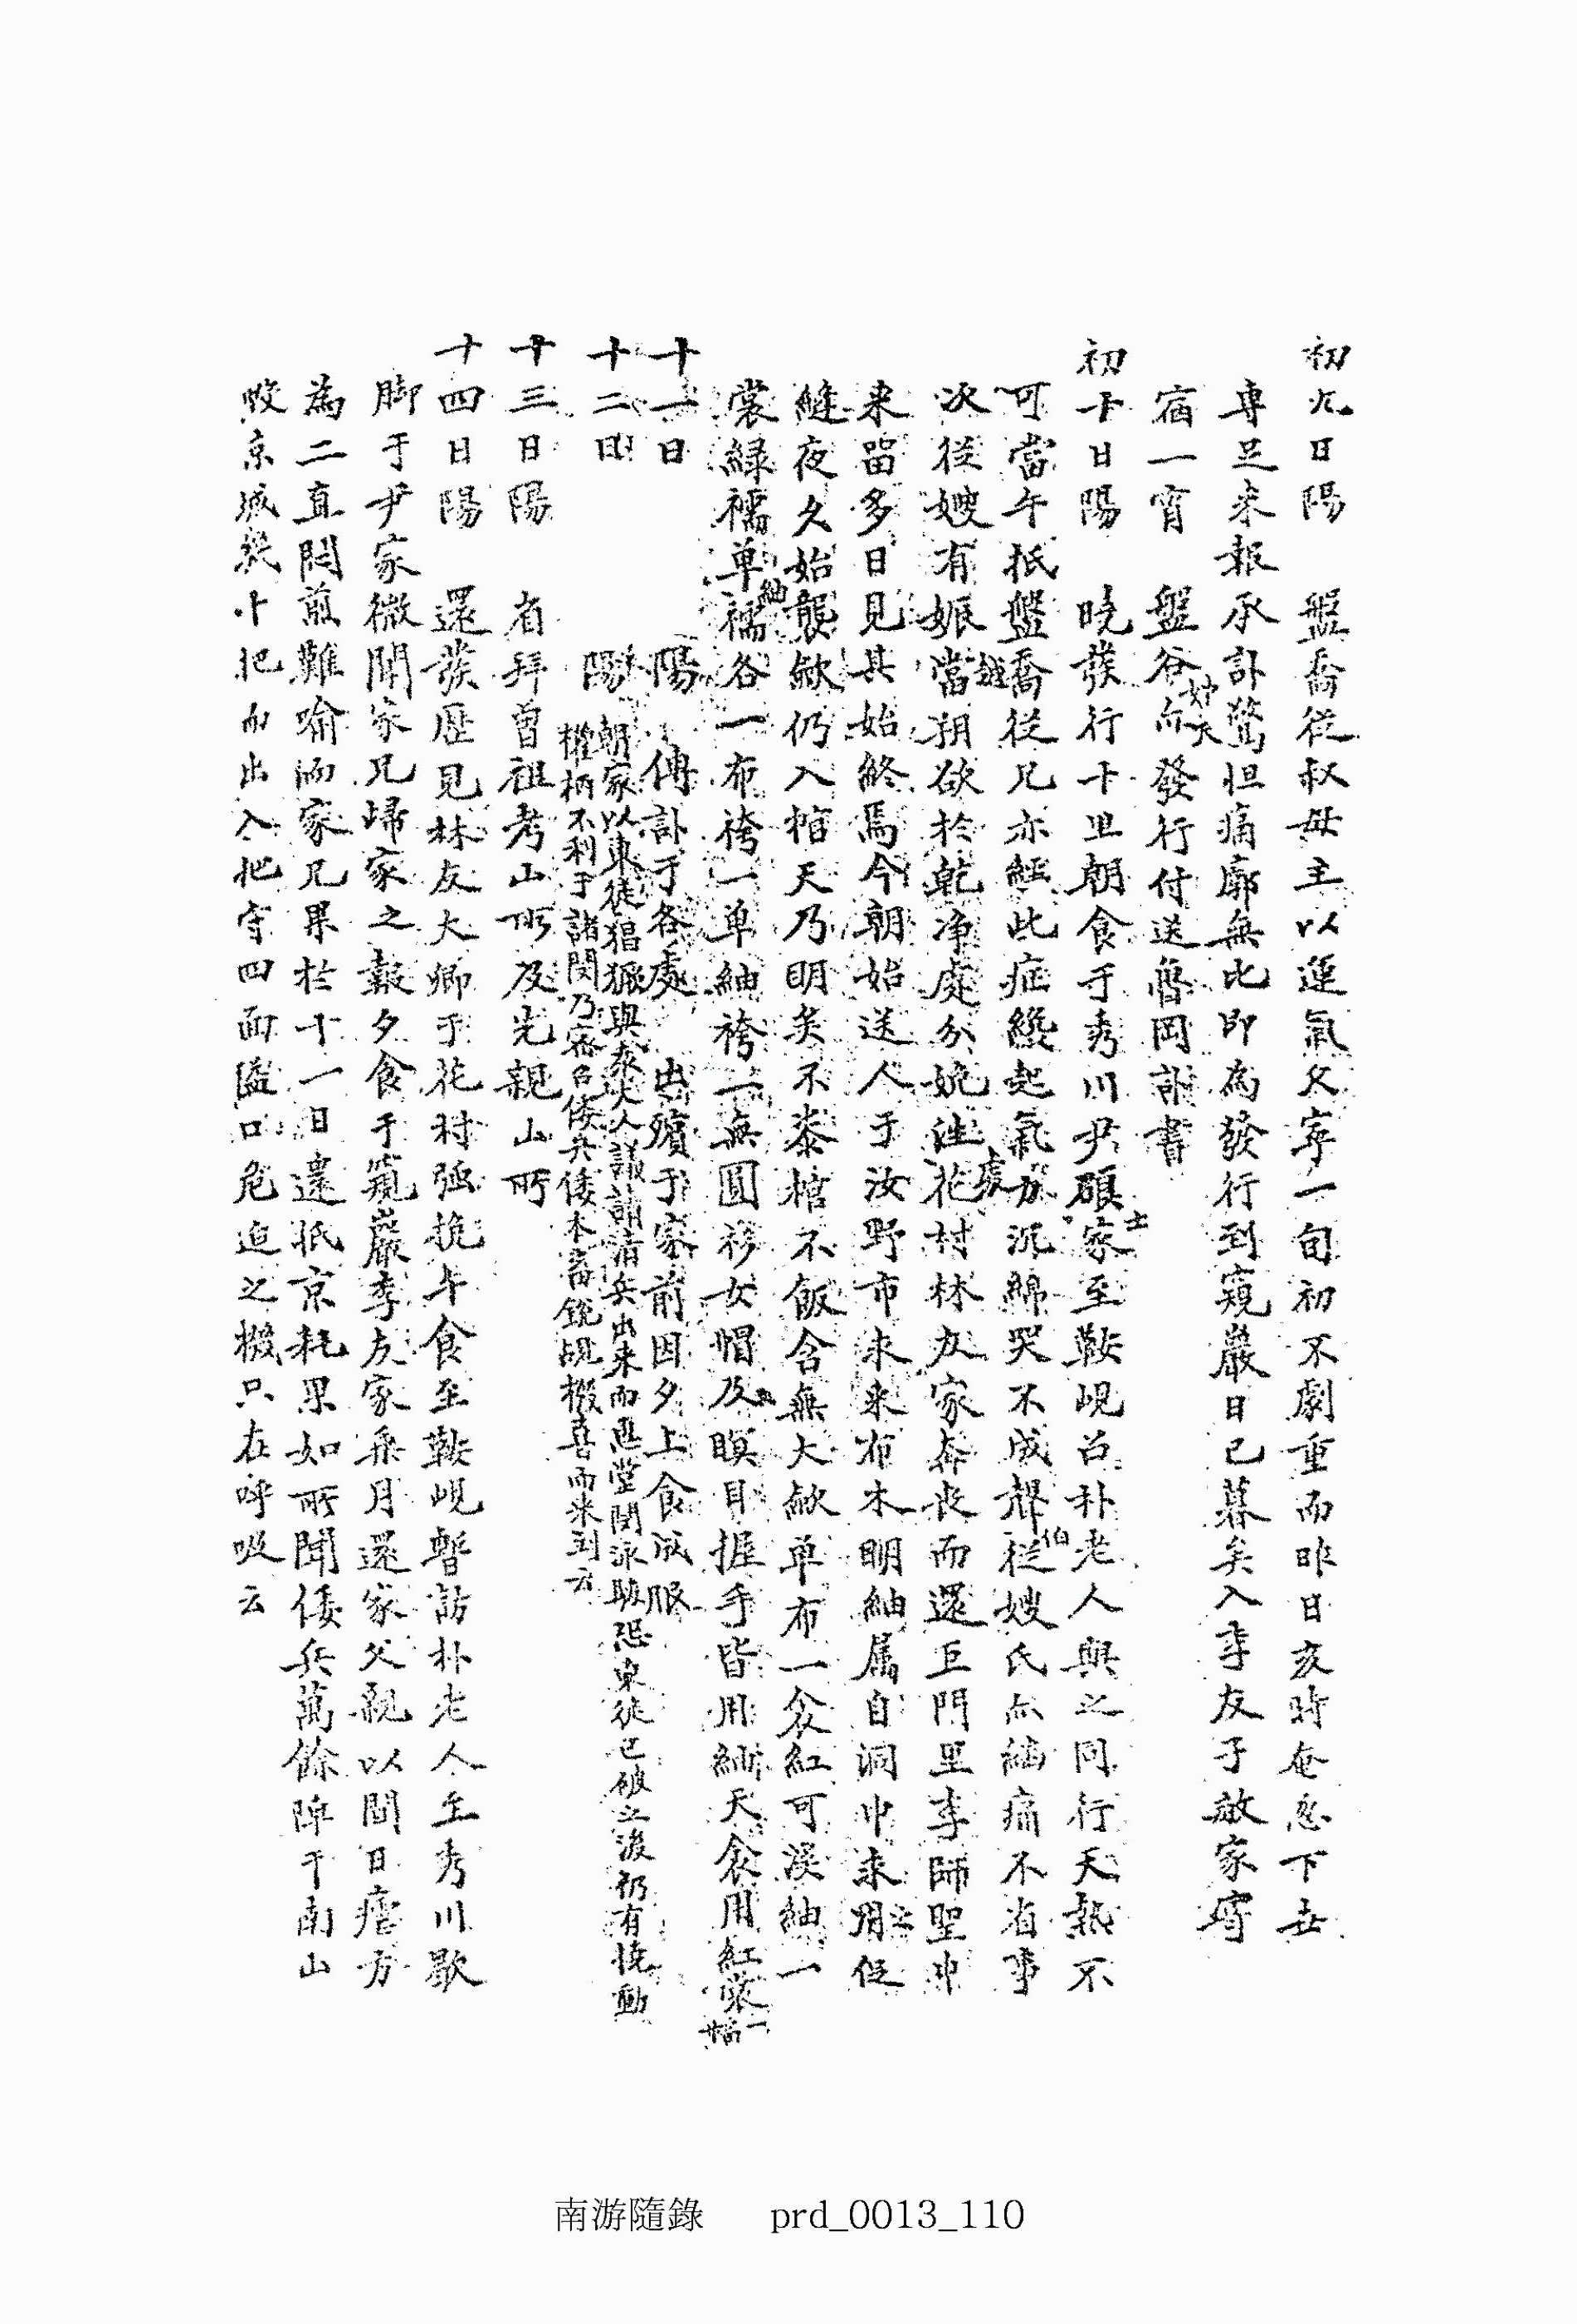 初九日陽 盤喬從叔母主以運氣欠寧一旬初不劇重而昨日亥時奄忽下世
專足來報承訃驚怛痛廓無比卽爲發行到窺巖日已暮矣入李友子敬家寄
宿一宵 盤谷 發行付送魯岡謝書
初十日陽 曉發行十里朝食于秀川尹碩士家至鞍峴召朴老人與之同行天熱不
可當午抵盤喬從兄亦經此症纔起氣方沉綿哭不成聲從伯嫂氏亦綿痛不省事
次從嫂有娠當越朔欲於乾净處分娩往處花村林友家奔喪而還巨門里李師聖中
來留多日見其始終焉今朝始送人于汝野市求來布木明紬屬自洞中來用之促
縫夜久始襲斂仍入棺天乃明矣不柒棺不飯含無大斂單布一衾紅可溪紬一
裳綠襦單紬襦各一布袴一單紬袴一無圓衫女帽及 瞑目握手皆用紬天衾用紅裳一
十一日 陽 傳訃于各處 出殯于家前因夕上食成服
十二日 陽 朝家以東徒猖獗與 大人議請淸兵出來而惠堂閔泳駿恐東徒已破之後仍有撓動
權柄不利于諸閔乃密召倭兵倭本畜銳覘機喜而來到云
十三日陽 省拜曾祖考山所及先親山所
十四日陽 還發歷見林友大卿于花村强挽午食至鞍峴暫訪朴老人至秀川歇
脚于尹家微聞家兄歸家之報夕食于窺巖李友家乘月還家父親以間日瘧方
爲二直悶煎難喩而家兄果於十一日還抵京耗果如所聞倭兵萬餘陣于南山
及京城 十把而出入把守四面隘口危迫之機只在呼吸云
南游隨錄 prd_0013_110